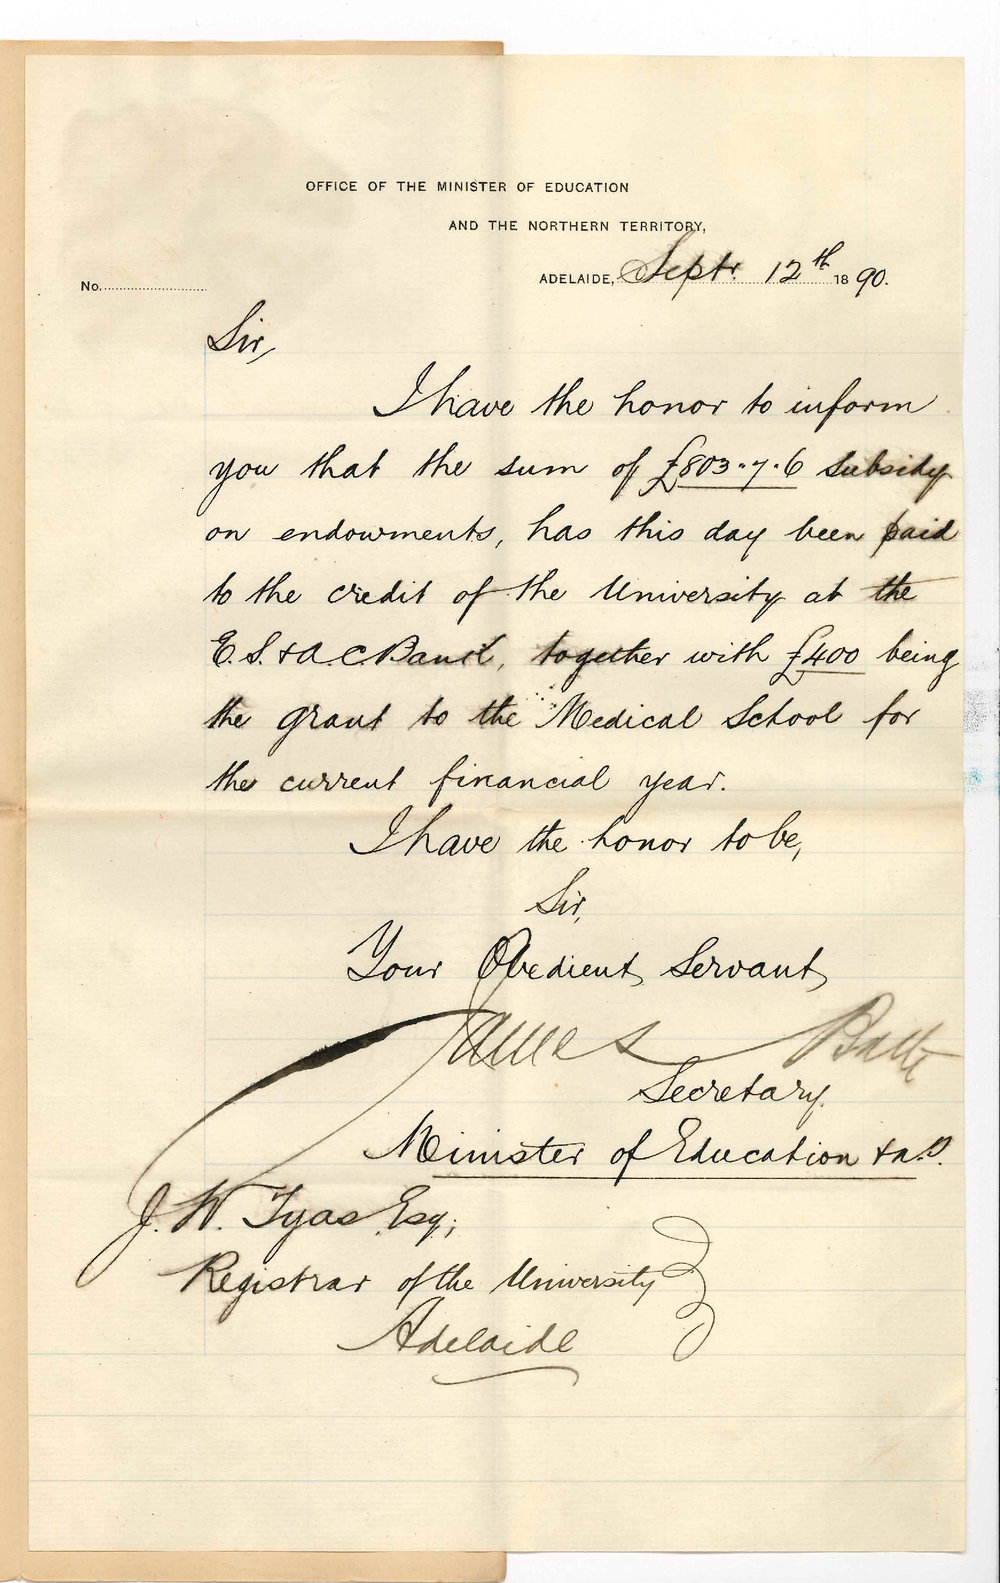 OFFICE OF THE MINISTER OF EDUCATION
AND THE NORTHERN TERRITORY,
No.
ADELAIDE, Septr. 12th 1890.
Sir,
I have the honor to inform
you that the sum of £803.7.6 subsidy
on endowments, has this day been paid
to the credit of the University at the
E. S. & A. C Bank, together with £400 being
the grant to the Medical School for
the current financial year.
I have the honor to be,
Sir,
Your Obedient Servant,
James Bath
Secretary.
Minister of Education &a.
J. W. Tyas Esq;
Registrar of the University
Adelaide